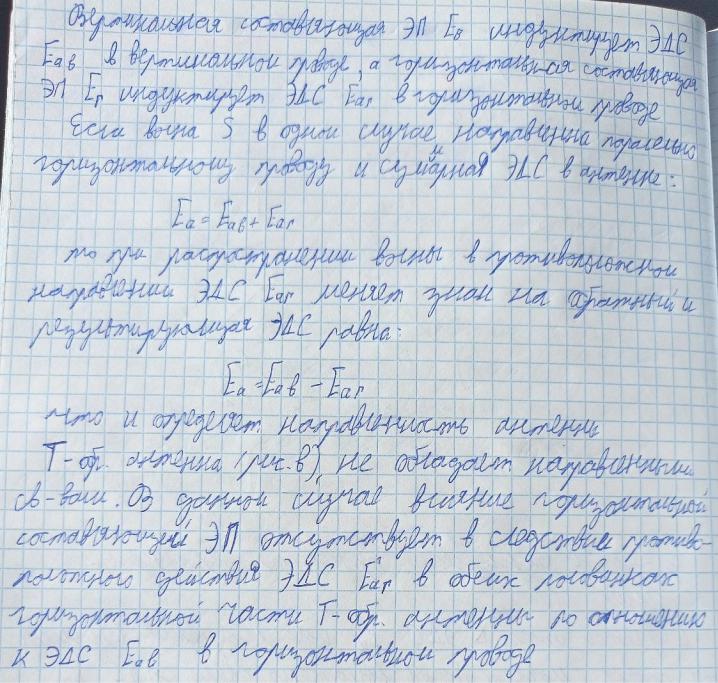 Вертикальная составляющая ЭП Eв индуктирует ЭДС
Eaв в вертикальном проводе, а горизонтальная составляющая
ЭП Eг индуктирует ЭДС Eaг в горизонтальном проводе
Если волна S в одном случае направленна паралельно
горизонтальному проводу и сумарная ЭДС в антенне:
Ea = Eaв + Eaг
то при распространении волны в противоположной
направлении ЭДС Eaг меняет знак на обратный и
результирующая ЭДС равна:
Ea = Eaв - Eaг
что и определяет направленность антенны
Т-обр. антенна (рис. в) не обладает направленными
св-вами. В данном случае влияние горизонтальной
составляющей ЭП отсутствует в следствии противо-
положного действия ЭДС Eaг в обеих половинках
горизонтальной части Т-обр. антенны по отношению
к ЭДС Eaв в горизонтальном проводе